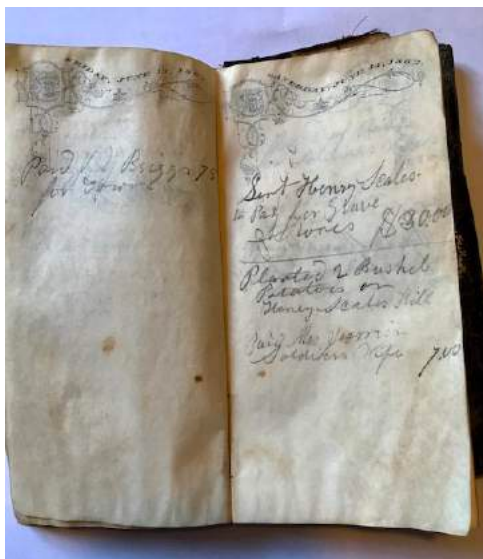 FRIDAY, JUNE 13, 1862.
Paid
for
SATURDAY, JUNE 14, 1862.
Sent Henry Scales
to Pay for Grave
Stones $30.00
Planted 2 Bushels
Potatoes on
Henry Scales Hill
Paid Mrs
Soldiers Wife 7.00